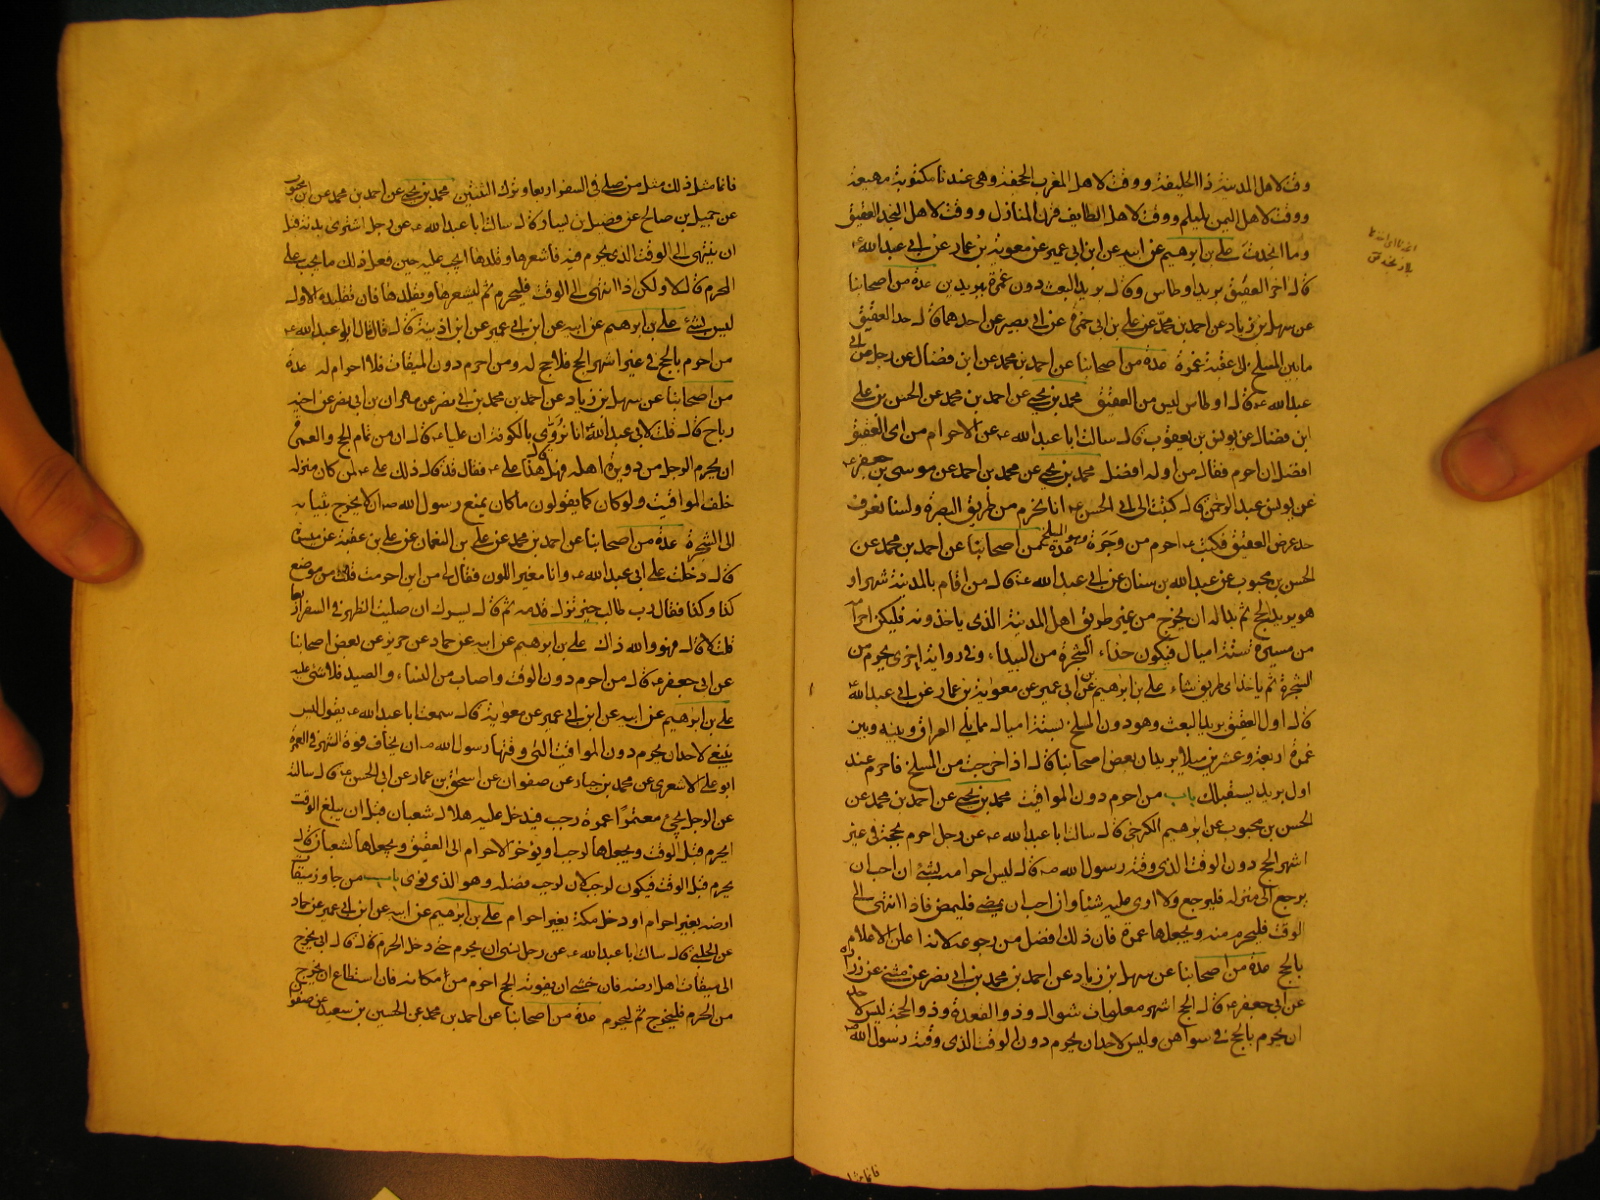 وقت لاهل المدينة ذا الحليفة ووقت لاهل المغرب الجحفة وهي عندنا مكتوبة مهيعة
ووقت لاهل اليمن يلملم ووقت لاهل الطايف قرن المنازل ووقت لاهل النجد العقيق
وما انجدت علي بن ابرهيم عن ابيه عن ابن ابي عمير عن معوية بن عمار عن ابي عبدالله ع
قال اخر العقيق بريد اوطاس وقال بريد البعث دون غمرة ببريدين عدة من اصحابنا
عن سهل بن زياد عن احمد بن محمد عن علي بن ابي حمزة عن ابي بصير عن احدهما قال حد العقيق
ما بين المسلخ الى عقبة غمرة عدة من اصحابنا عن احمد بن محمد عن ابن فضال عن رجل عن ابي
عبدالله ع قال اوطاس ليس من العقيق محمد بن يحيى عن احمد بن محمد عن الحسن بن علي
ابن فضال عن يونس بن يعقوب قال سالت ابا عبدالله ع عن الاحرام من اي العقيق
افضل ان احرم فقال من اوله افضل محمد بن يحيى عن محمد بن احمد عن موسى بن جعفر
عن يونس عبد الرحمن قال كتبت الى ابي الحسن ع انا نحرم من طريق البصرة ولسنا نعرف
حد عرض العقيق فكتب ع احرم من وجرة عدة من اصحابنا عن احمد بن محمد عن
الحسن بن محبوب عن عبدالله بن سنان عن ابي عبدالله ع قال من اقام بالمدينة شهرا و
هو يريد الحج ثم بدا له ان يخرج من غير طريق اهل المدينة الذي ياخذونه فليكن احرامه
من مسيرة ستة اميال فيكون حذاء الشجرة من البيداء وفي رواية اخرى يحرم من
الشجرة ثم ياخذ اي طريق شاء علي بن ابرهيم عن ابن ابي عمير عن معوية بن عمار عن ابي عبدالله ع
قال اول العقيق بريد البعث وهو دون المسلخ بستة اميال مما يلي العراق وبينه وبين
غمرة اربعة وعشرين ميلا بريدان بعض اصحابنا قال اذا خرجت من المسلخ فاحرم عند
اول بريد يستقبلك باب من احرم دون المواقيت محمد بن يحيى عن احمد بن محمد عن
الحسن بن محبوب عن ابرهيم الكرخي قال سالت ابا عبدالله ع عن رجل احرم بحجة في غير
اشهر الحج دون الوقت الذي وقته رسول الله ص قال ليس احرامه بشئ ان احب ان
يرجع الى منزله فليرجع ولا ارى عليه شئيا وان احب ان يمضي فليمض فاذا انتهى الى
الوقت فليحرم منه ويجعلها عمرة فان ذلك افضل من رجوعه لانه اعلن الاحرام
بالحج عدة من اصحابنا عن سهل بن زياد عن احمد بن محمد بن ابي نصر عن مثنى عن زرارة
عن ابي جعفر ع قال الحج اشهر معلومات شوال وذو القعدة وذو الحجة ليس لاحد
ان يحرم بالحج في سواهن وليس لاحد ان يحرم دون الوقت الذي وقته رسول الله ص
فانما مثل
فانما مثل ذلك مثل من صلى في السفر اربعا وترك الثنتين محمد بن يحيى عن احمد بن محمد عن ابن محبوب
عن جميل بن صالح عن فضيل بن يسار قال سالت ابا عبدالله ع عن رجل اشترى بدنة قبل
ان ينتهي الى الوقت الذي يحرم فيه فاشعرها وقلدها ايجب عليه حين فعل ذلك ما يجب على
المحرم قال لا ولكن اذا انتهى الى الوقت فليحرم ثم ليشعرها ويقلدها فان تقليده الاول
ليس بشئ علي بن ابرهيم عن ابيه عن ابن ابي عمير عن ابن اذينة قال قال ابو عبدالله ع
من احرم بالحج في غير اشهر الحج فلا حج له ومن احرم دون الميقات فلا احرام له عدة
من اصحابنا عن سهل بن زياد عن احمد بن محمد بن ابي نصر عن مهران بن ابي نصر عن اخيه
رباح قال قلت لابي عبدالله ع انا نروى بالكوفة ان عليا ع قال ان من تمام الحج والعمرة
ان يحرم الرجل من دويرة اهله فهل قال هذا علي ع فقال قد قال ذلك علي ع لمن كان منزله
خلف المواقيت ولو كان كما يقولون ما كان يمنع رسول الله ص ان لا يخرج بثيابه
الى الشجرة عدة من اصحابنا عن احمد بن محمد عن علي بن النعمان عن علي بن عقبة عن ميسرة
قال دخلت على ابي عبدالله ع وانا متغير اللون فقال لي من اين احرمت قلت من موضع
كذا وكذا فقال رب طالب خير تزل قدمه ثم قال يسرك ان صليت الظهر في السفر اربعا
قلت لا قال فهو والله ذاك علي بن ابرهيم عن ابيه عن حماد عن حريز عن بعض اصحابنا
عن ابي جعفر ع قال من احرم دون الوقت واصاب من النساء والصيد فلا شئ عليه
علي بن ابرهيم عن ابيه عن ابن ابي عمير عن معوية قال سمعت ابا عبدالله ع يقول ليس
ينبغي لاحد ان يحرم دون المواقيت التي وقتها رسول الله ص ان يخاف فوة الشهر في العمرة
ابو علي الاشعري عن محمد بن جبار عن صفوان عن اسحق بن عمار عن ابي الحسن ع قال سالته
عن الرجل يجئ معتمرا عمرة رجب فيدخل عليه هلال شعبان قبل ان يبلغ الوقت
ايحرم قبل الوقت ويجعلها لرجب او يؤخر الاحرام الى العقيق ويجعلها لشعبان قال
يحرم قبل الوقت فيكون لرجب لان لرجب فضله وهو الذي نوى باب من جاوز ميقات
ارضه بغير احرام او دخل مكة بغير احرام علي بن ابرهيم عن ابيه عن ابن ابي عمير عن حماد
عن الحلبي قال سالت ابا عبدالله ع عن رجل نسي ان يحرم حتى دخل الحرم قال قال ابي يخرج
الى ميقات اهل ارضه فان خشي ان يفوته الحج احرم من مكانه فان استطاع ان يخرج
من الحرم فليخرج ثم ليحرم عدة من اصحابنا عن احمد بن محمد عن الحسين بن سعيد عن صفوا